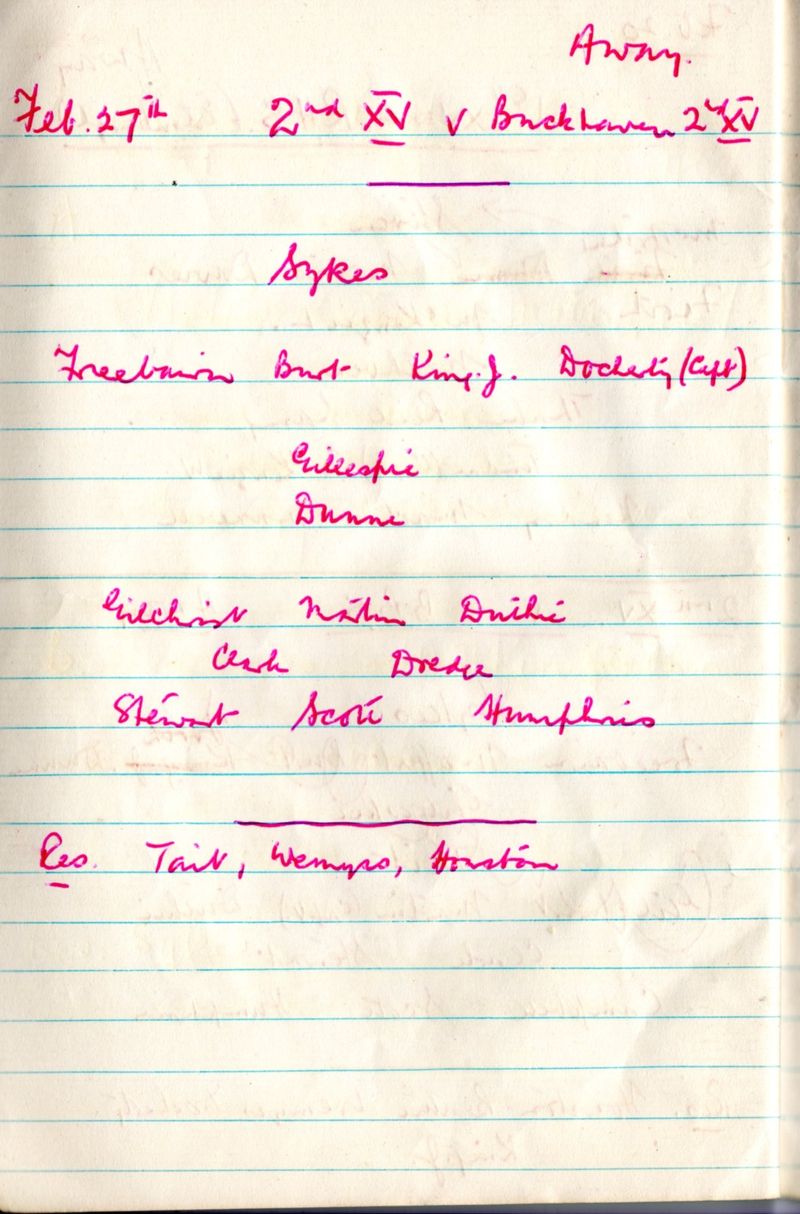 Away.
Feb. 27th 2nd XV v Buckhaven 2nd XV
Sykes
Freebairn Burt King. J. Docherty (Capt)
Gillespie
Dunne
Gilchrist Martin Duthie
Clark Dredge
Stewart Scott Humphris
Res. Tait, Wemyss, Houston